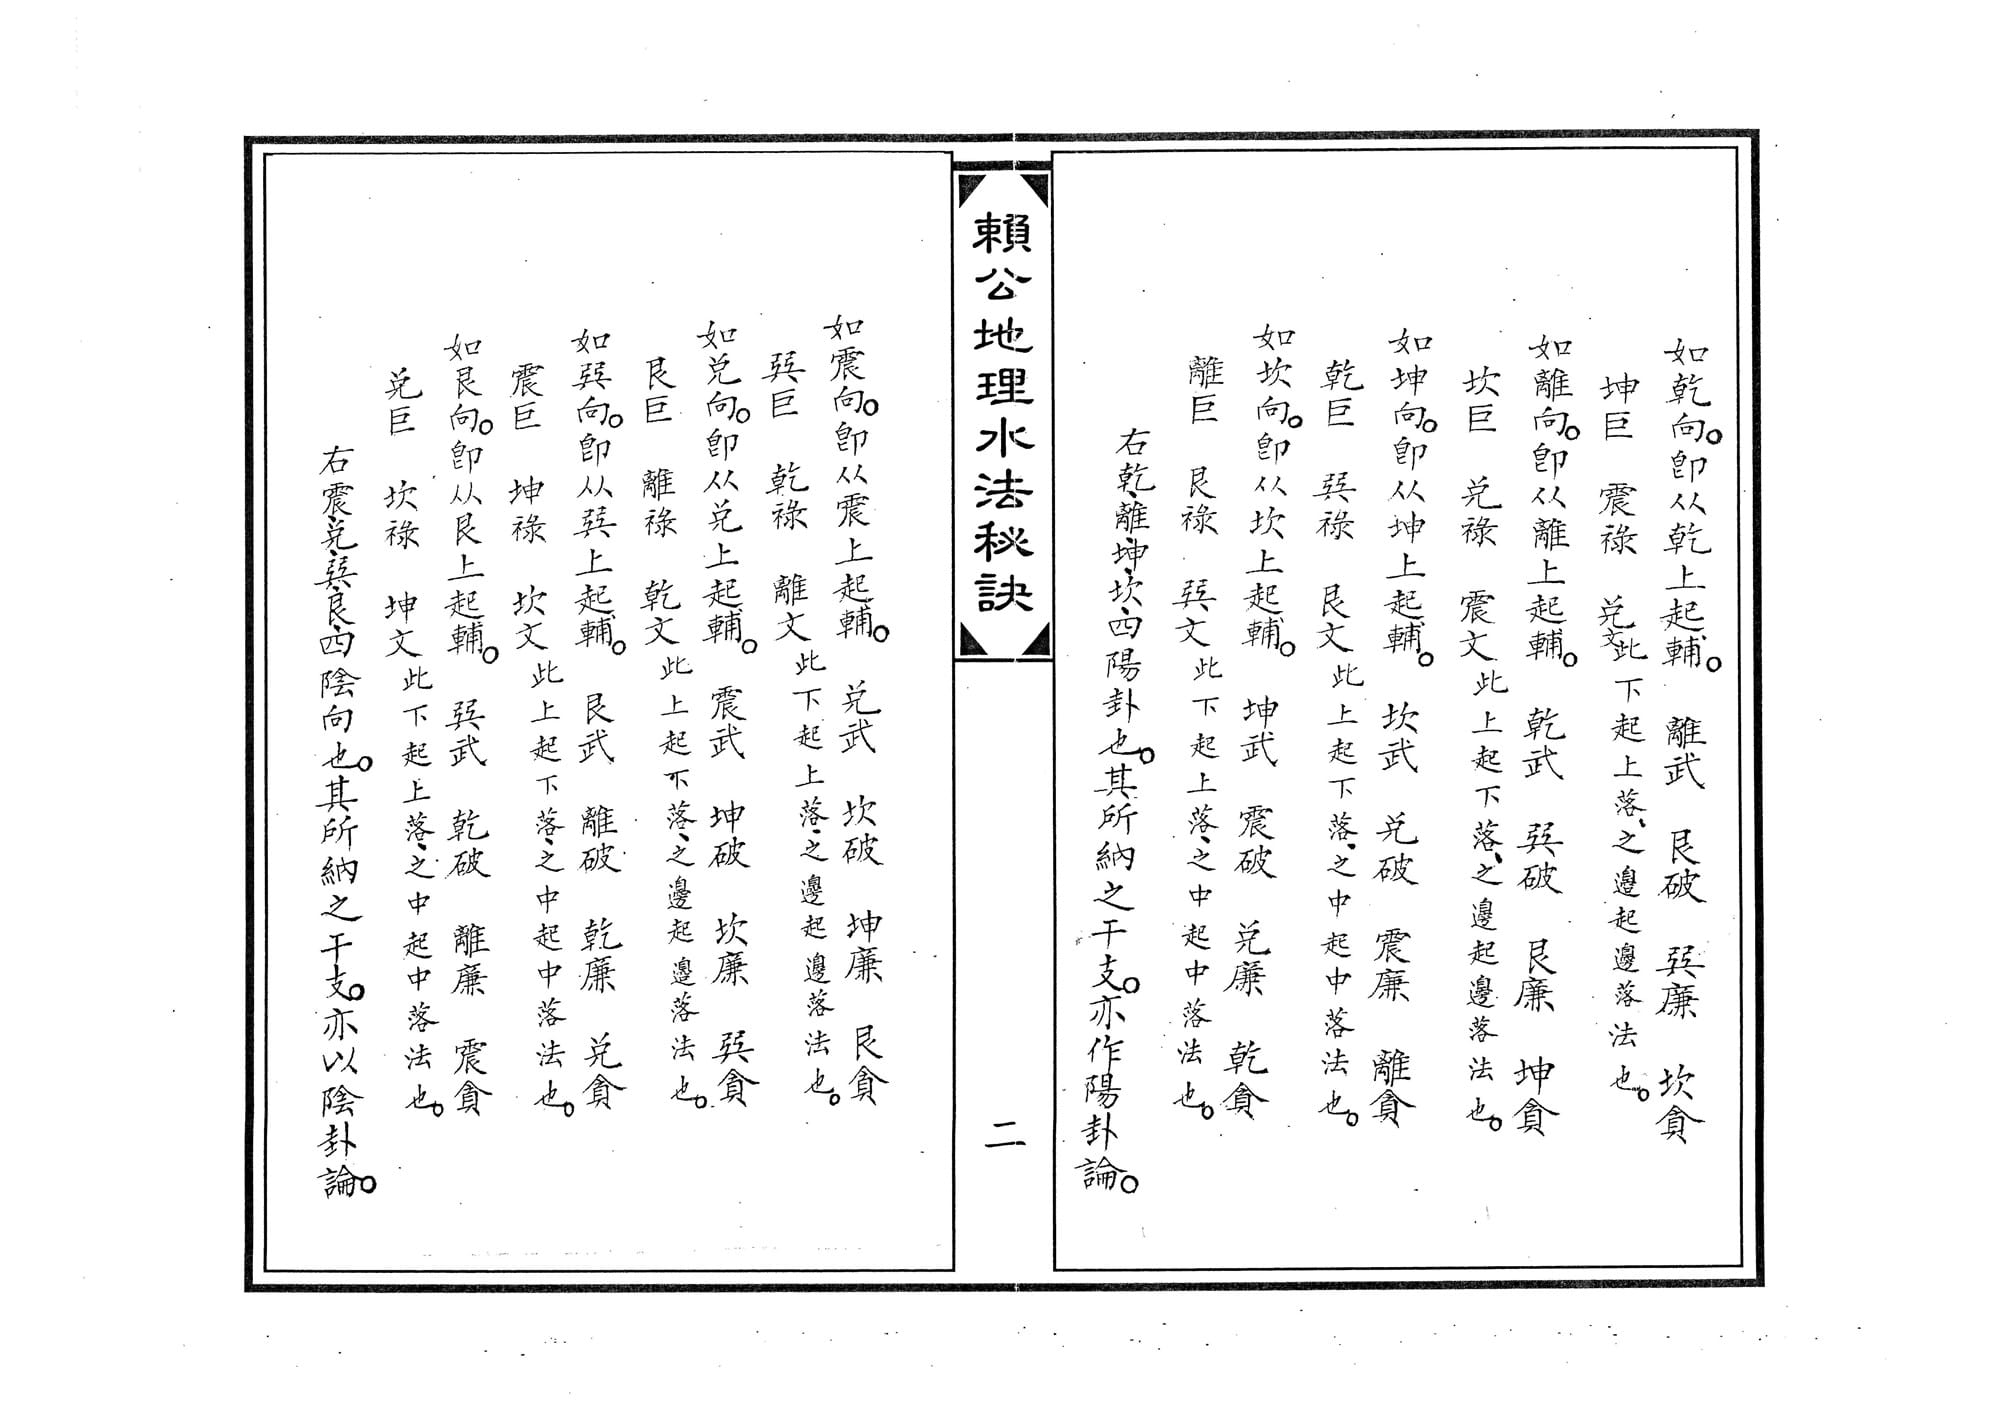 如乾向。卽从乾上起輔。　離武　艮破　巽廉　坎貪
坤巨　震祿　兌文此下起上落、之邊起邊落法也。
如離向。卽从離上起輔。　乾武　巽破　艮廉　坤貪
坎巨　兌祿　震文此上起下落、之邊起邊落法也。
如坤向。卽从坤上起輔。　坎武　兌破　震廉　離貪
乾巨　巽祿　艮文此上起下落、之中起中落法也。
如坎向。卽从坎上起輔。　坤武　震破　兌廉　乾貪
離巨　艮祿　巽文此下起上落、之中起中落法也。
右乾、離、坤、坎、四陽卦也。其所納之干支。亦作陽卦論。
賴公地理水法秘訣
二
如震向。卽从震上起輔。　兌武　坎破　坤廉　艮貪
巽巨　乾祿　離文此下起上落、之邊起邊落法也。
如兌向。卽从兌上起輔。　震武　坤破　坎廉　巽貪
艮巨　離祿　乾文此上起下落、之邊起邊落法也。
如巽向。卽从巽上起輔。　艮武　離破　乾廉　兌貪
震巨　坤祿　坎文此上起下落、之中起中落法也。
如艮向。卽从艮上起輔。　巽武　乾破　離廉　震貪
兌巨　坎祿　坤文此下起上落、之中起中落法也。
右震、兌、巽、艮、四陰向也。其所納之干支。亦以陰卦論。